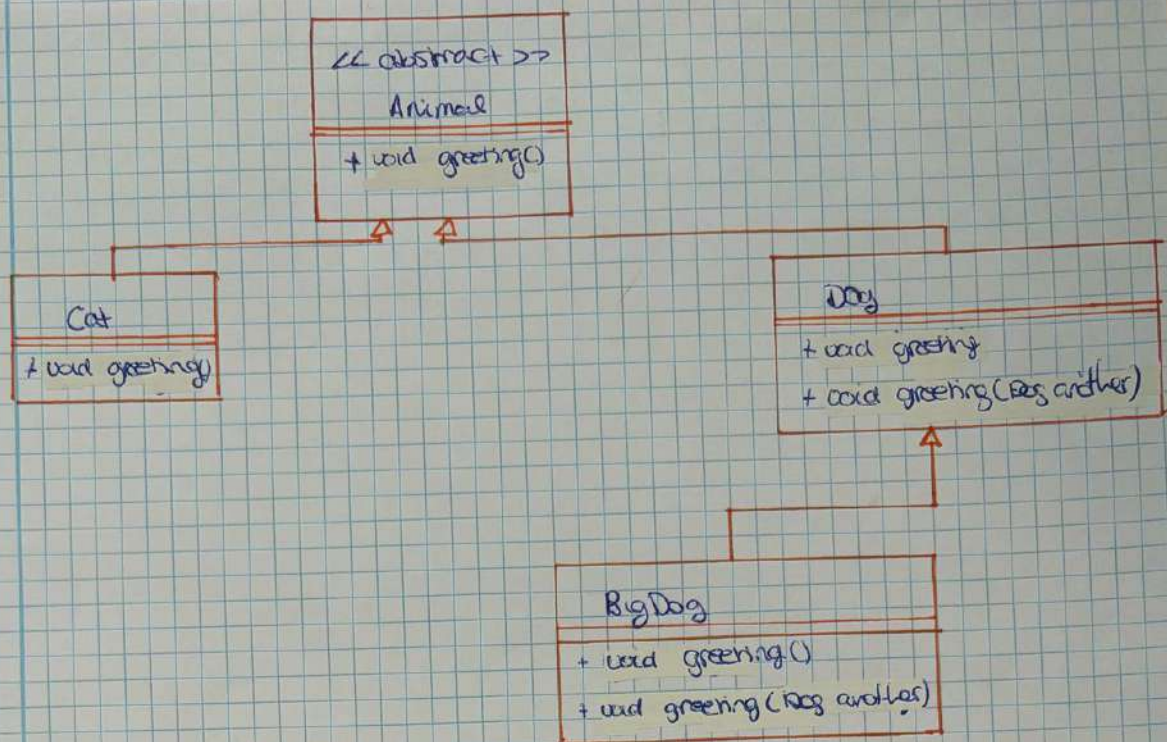 << abstract >>
Animal
+ void greeting()
Cat
+ void greeting()
Dog
+ void greeting
+ void greeting (Dog another)
BigDog
+ void greeting ()
+ void greeting (Dog another)